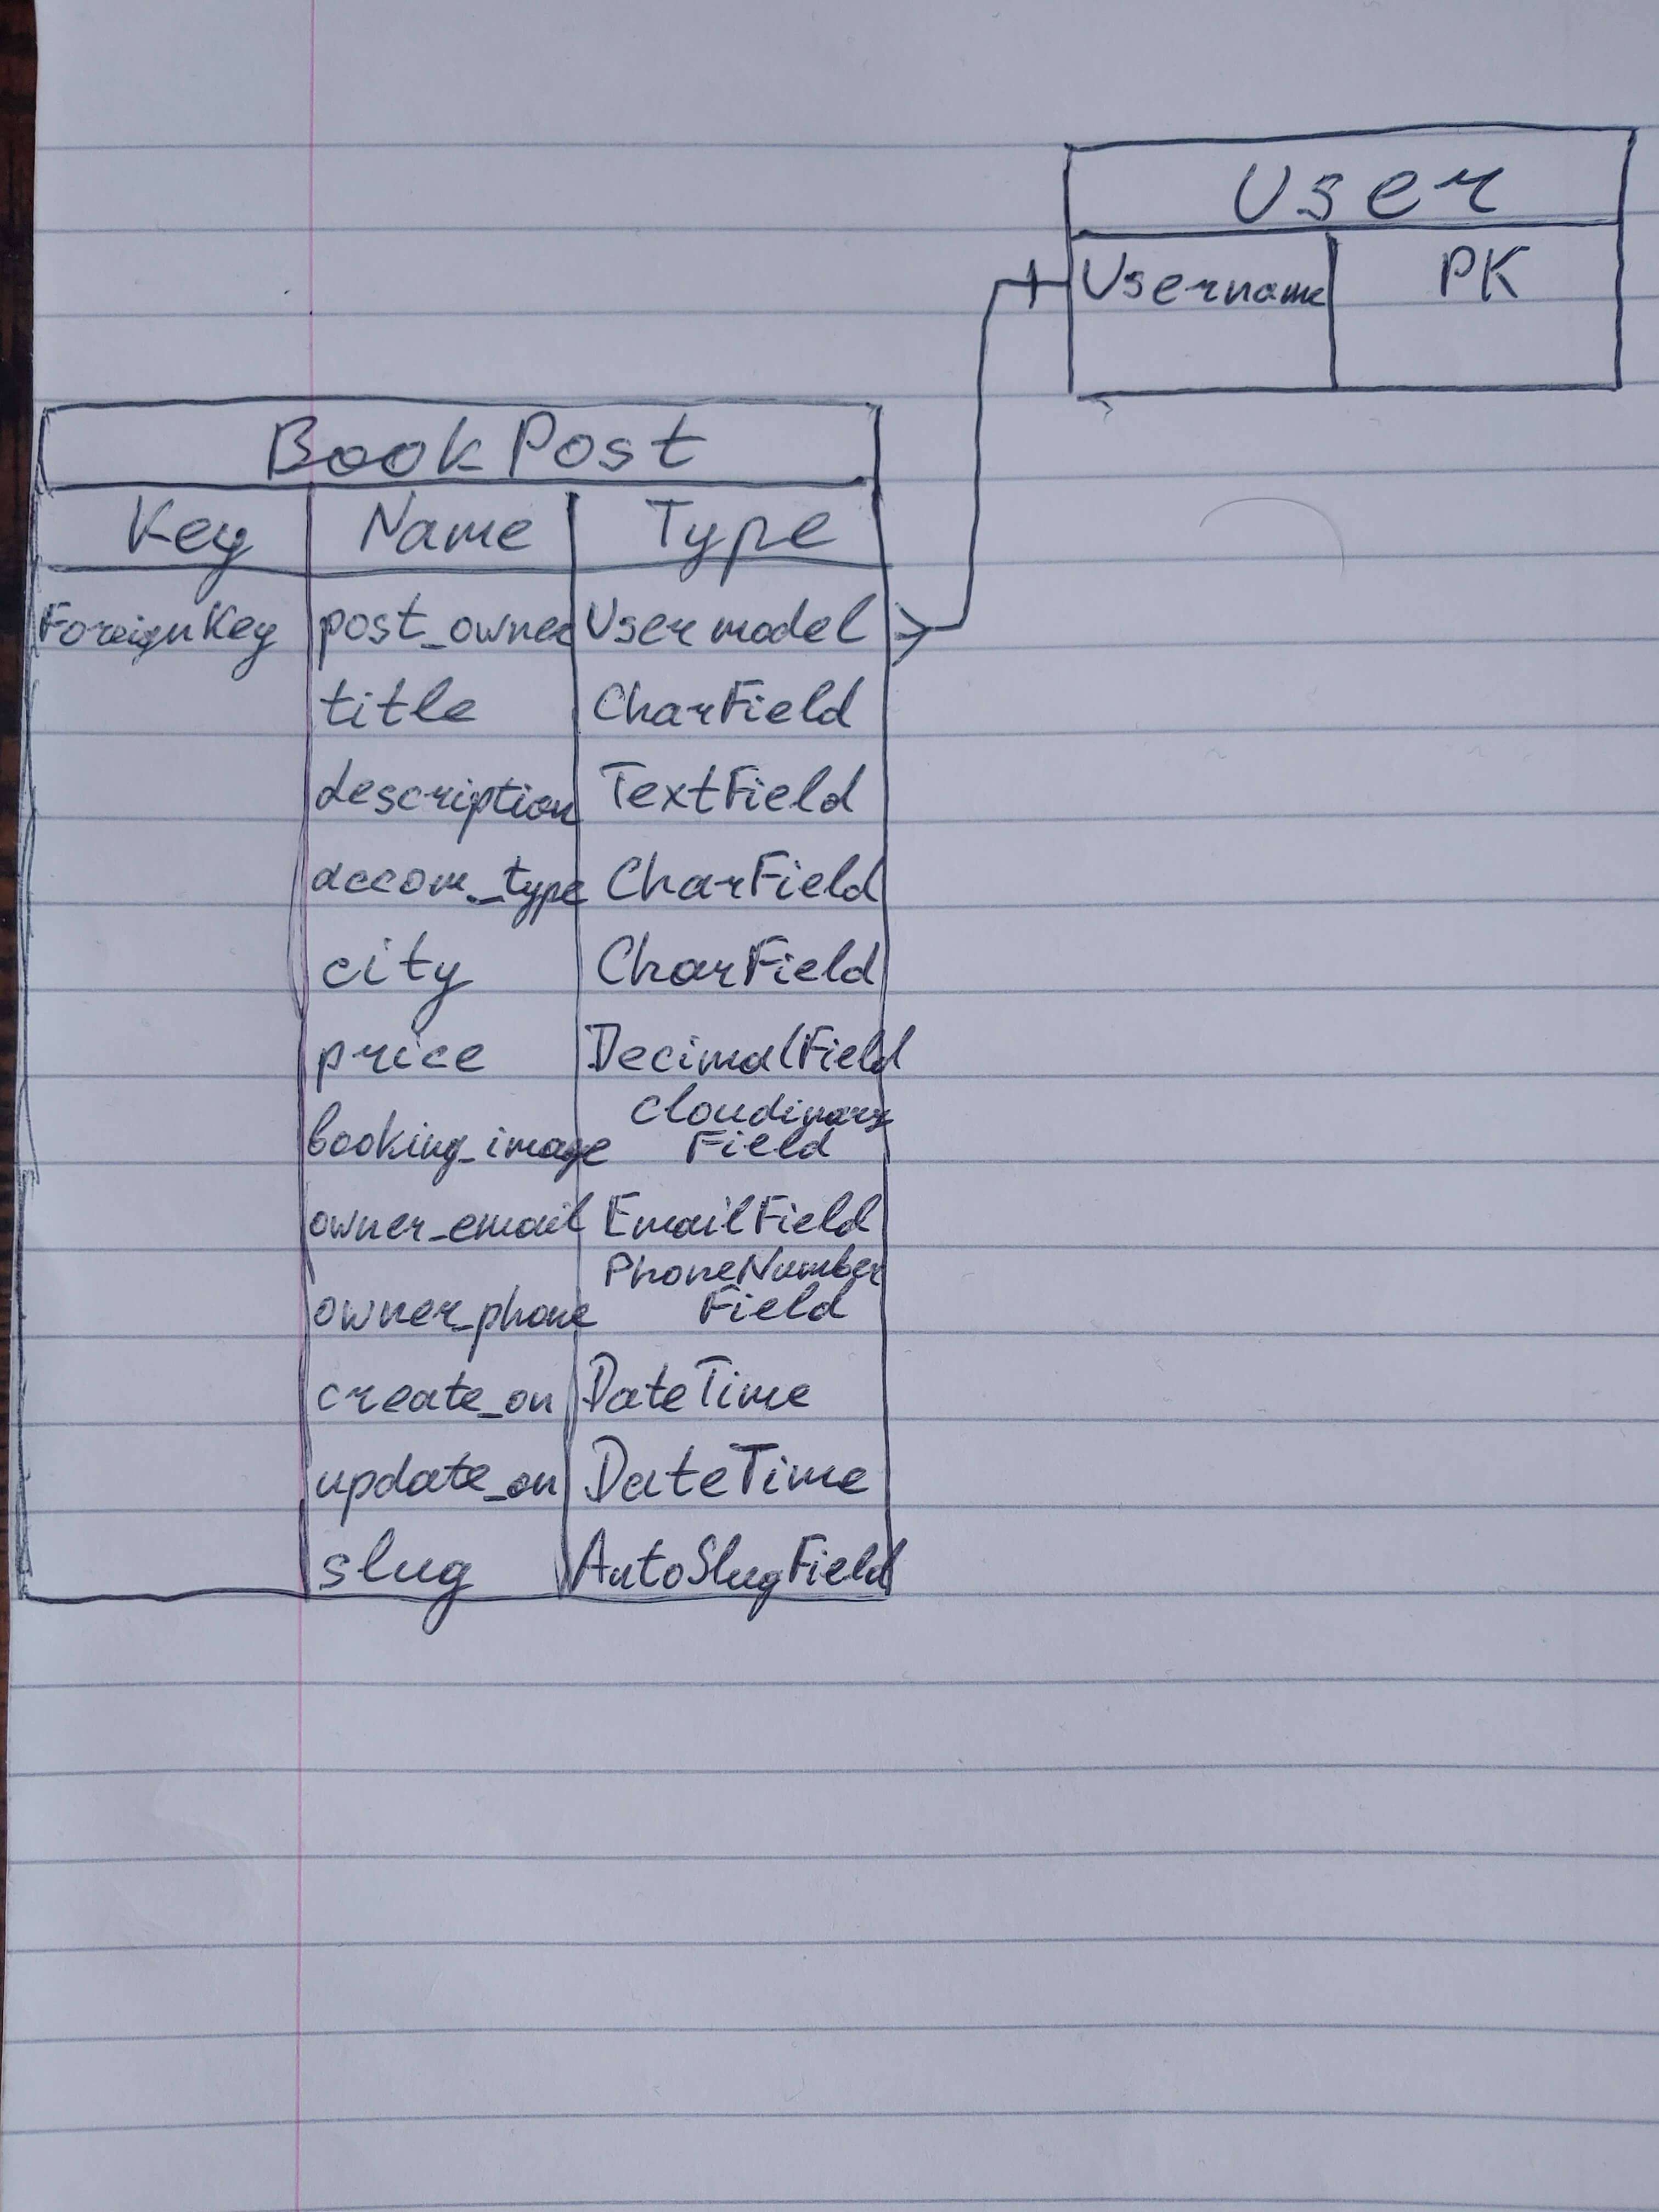 User
Username PK
BookPost
Key Name Type
ForeignKey post_owner User model
title CharField
description TextField
accom_type CharField
city CharField
price DecimalField
booking_image Cloudinary
Field
owner_email EmailField
owner_phone PhoneNumber
Field
create_on DateTime
update_on DateTime
slug AutoSlugField